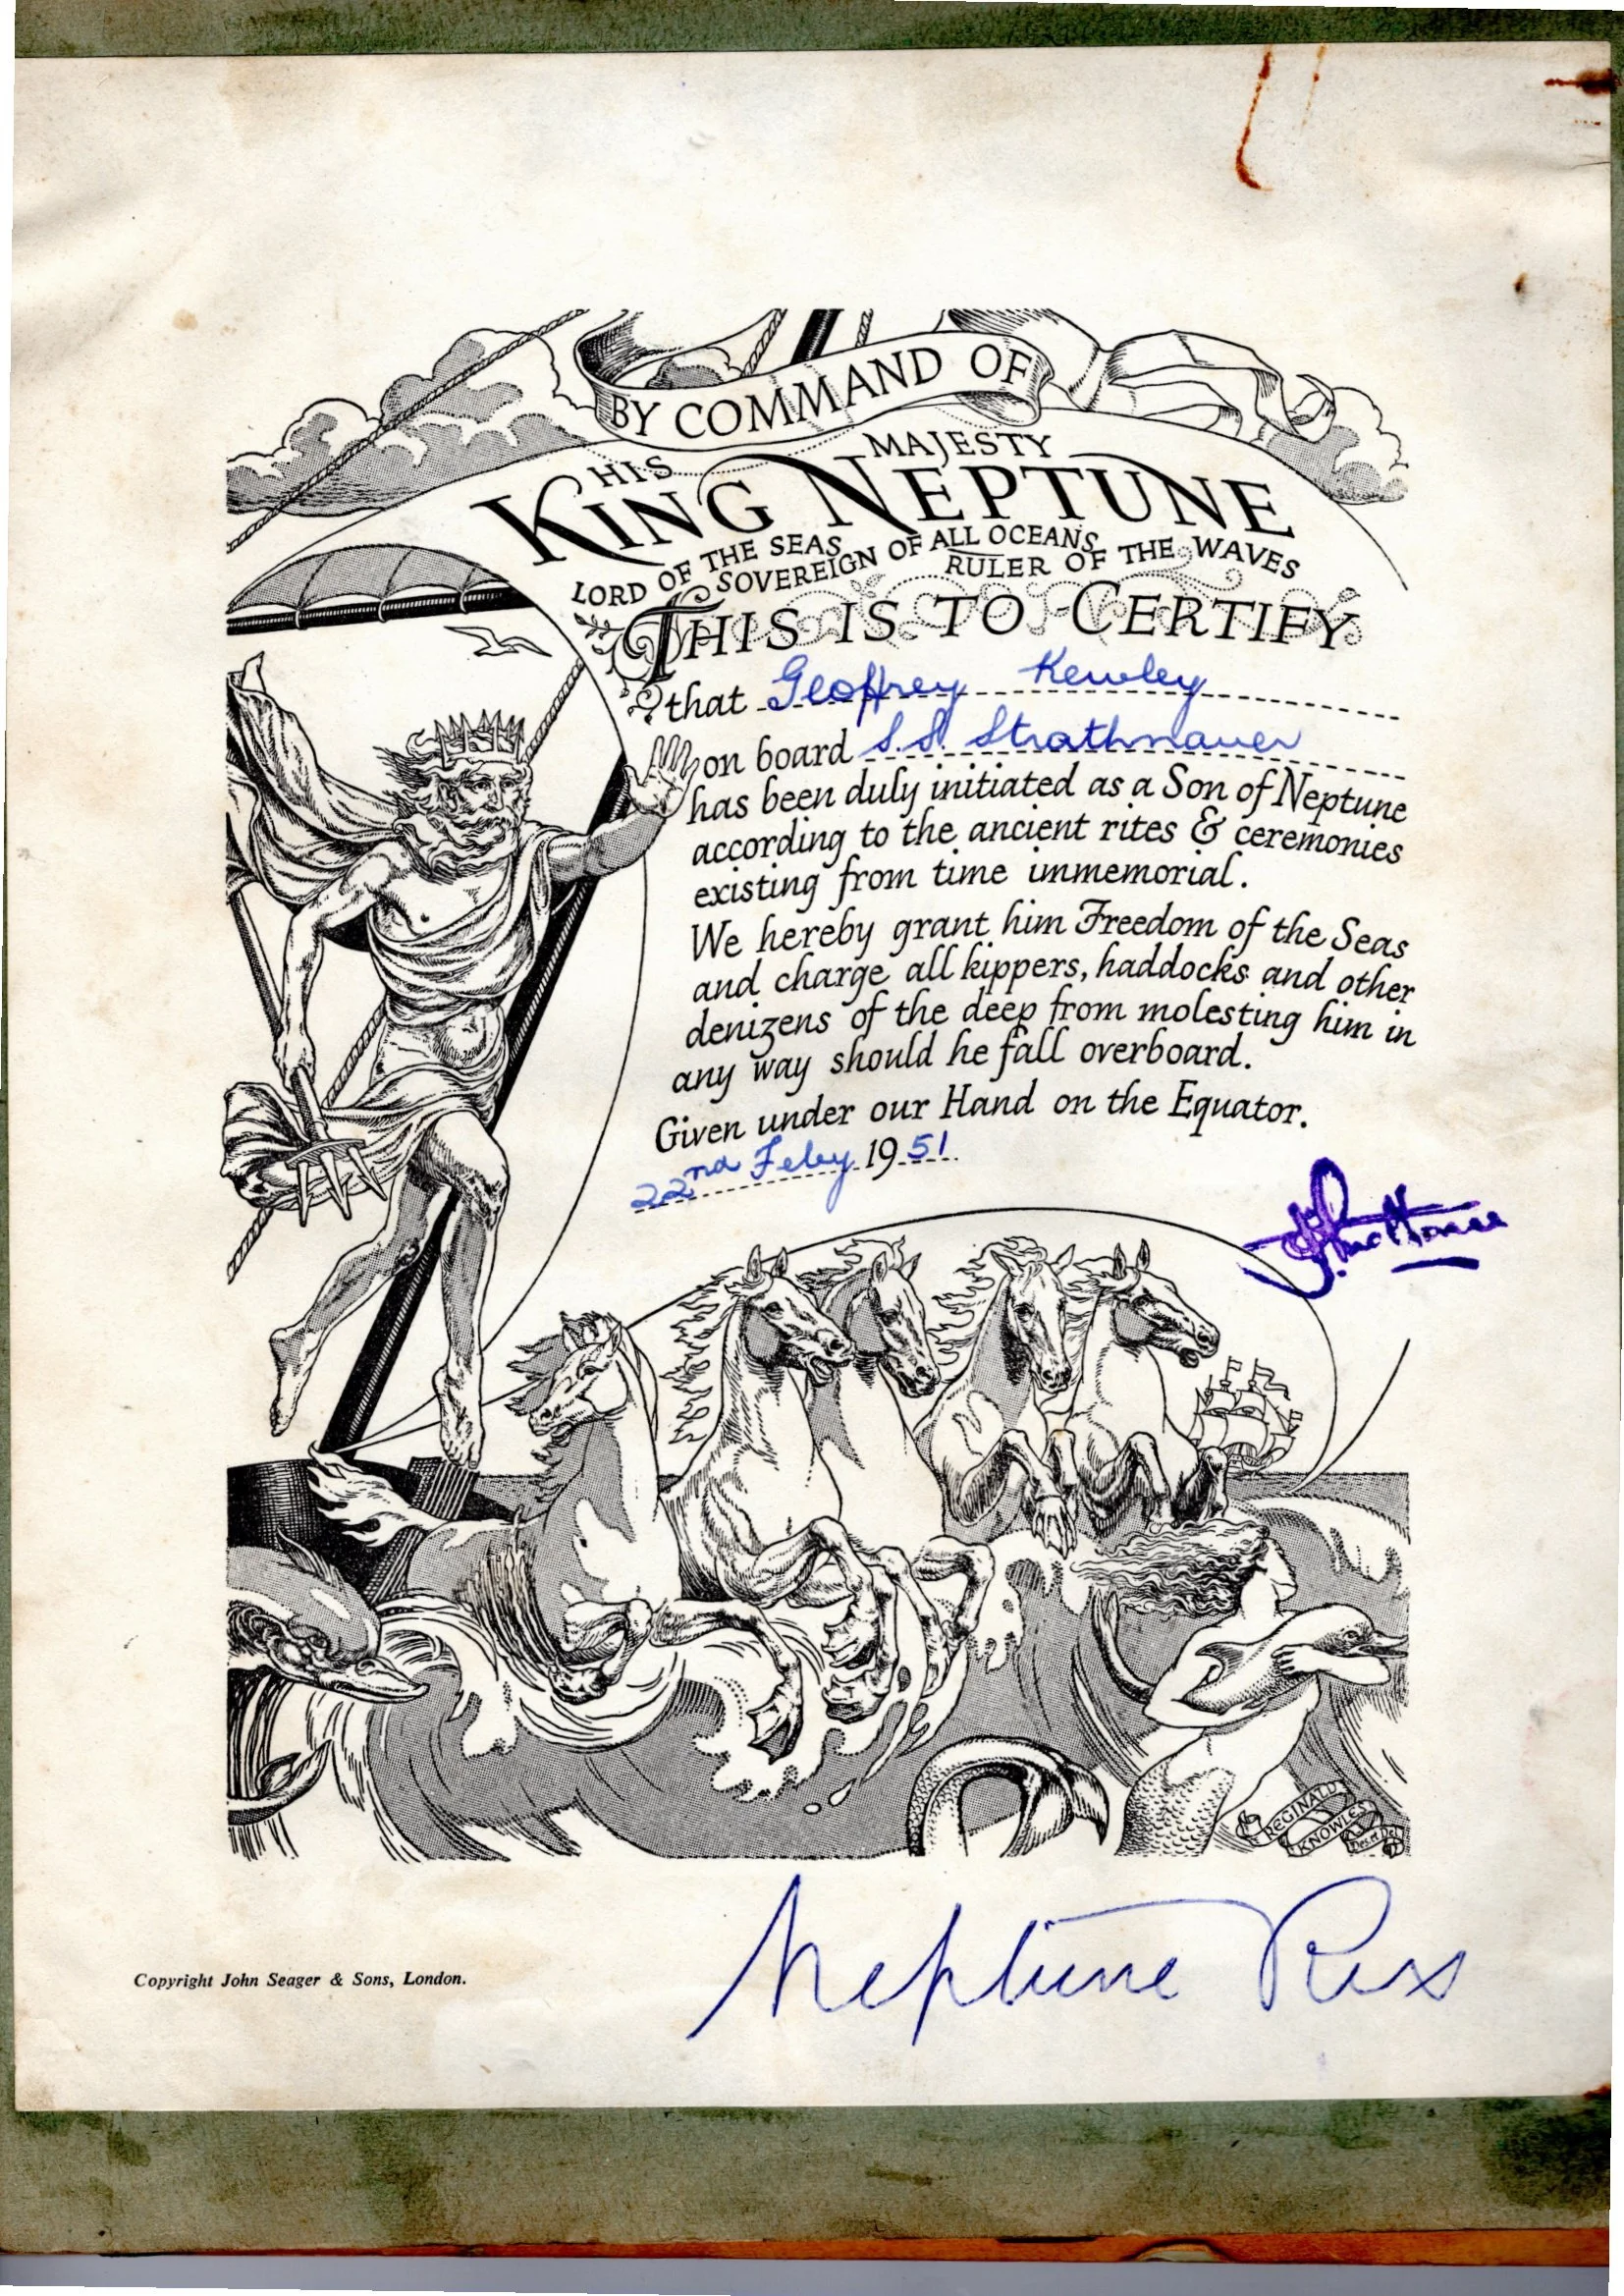 BY COMMAND OF
HIS MAJESTY
KING NEPTUNE
LORD OF THE SEAS
SOVEREIGN OF ALL OCEANS
RULER OF THE WAVES
THIS IS TO CERTIFY
that Geoffrey Kewley
on board S.S. Strathnaver
has been duly initiated as a Son of Neptune
according to the ancient rites & ceremonies
existing from time immemorial.
We hereby grant him Freedom of the Seas
and charge all kippers, haddocks and other
denizens of the deep from molesting him in
any way should he fall overboard.
Given under our Hand on the Equator.
22nd Feby 1951.
REGINALD
KNOWLES
Des et Del
Neptune Rex
Copyright John Seager & Sons, London.